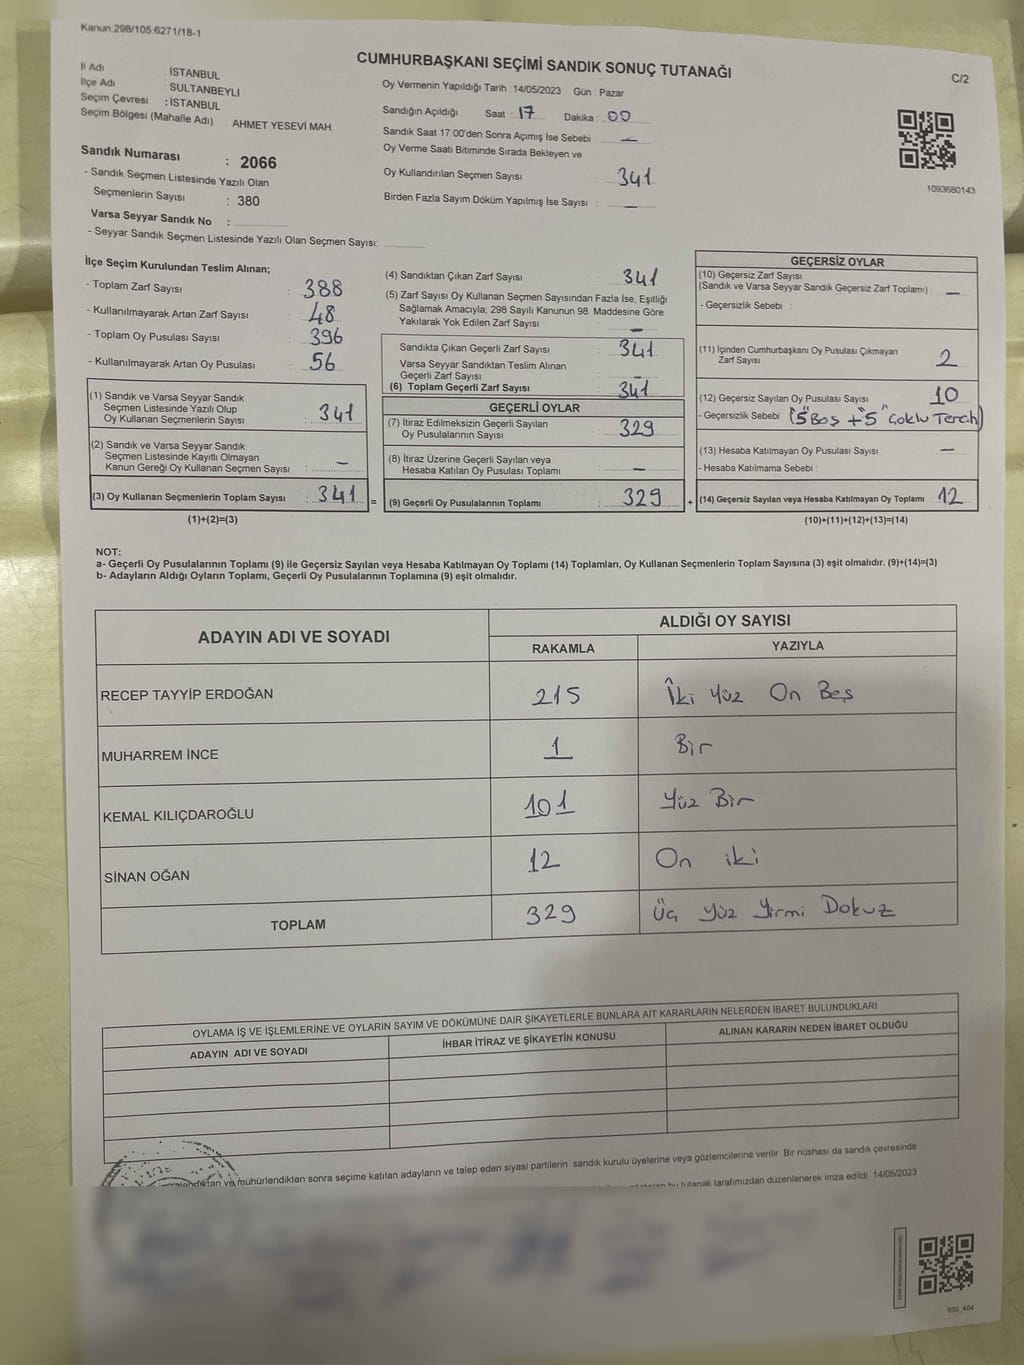 Kanun:298/105:6271/18-1
CUMHURBAŞKANI SEÇİMİ SANDIK SONUÇ TUTANAĞI
C/2
İl Adı : İSTANBUL
İlçe Adı : SULTANBEYLİ
Seçim Çevresi : İSTANBUL
Seçim Bölgesi (Mahalle Adı) : AHMET YESEVİ MAH.
Sandık Numarası : 2066
- Sandık Seçmen Listesinde Yazılı Olan
Seçmenlerin Sayısı : 380
Varsa Seyyar Sandık No :
- Seyyar Sandık Seçmen Listesinde Yazılı Olan Seçmen Sayısı:
Oy Vermenin Yapıldığı Tarih : 14/05/2023 Gün : Pazar
Sandığın Açıldığı Saat : 17 Dakika : 00
Sandık Saat 17:00'den Sonra Açımış İse Sebebi : —
Oy Verme Saati Bitiminde Sırada Bekleyen ve
Oy Kullandırılan Seçmen Sayısı : 341
Birden Fazla Sayım Döküm Yapılmış İse Sayısı : —
1093680143
İlçe Seçim Kurulundan Teslim Alınan;
- Toplam Zarf Sayısı : 388
- Kullanılmayarak Artan Zarf Sayısı : 48
- Toplam Oy Pusulası Sayısı : 396
- Kullanılmayarak Artan Oy Pusulası : 56
(1) Sandık ve Varsa Seyyar Sandık
Seçmen Listesinde Yazılı Olup
Oy Kullanan Seçmenlerin Sayısı : 341
(2) Sandık ve Varsa Seyyar Sandık
Seçmen Listesinde Kayıtlı Olmayan
Kanun Gereği Oy Kullanan Seçmen Sayısı : —
(3) Oy Kullanan Seçmenlerin Toplam Sayısı : 341 =
(1)+(2)=(3)
(4) Sandıktan Çıkan Zarf Sayısı : 341
(5) Zarf Sayısı Oy Kullanan Seçmen Sayısından Fazla İse, Eşitliği
Sağlamak Amacıyla; 298 Sayılı Kanunun 98. Maddesine Göre
Yakılarak Yok Edilen Zarf Sayısı : —
Sandıkta Çıkan Geçerli Zarf Sayısı : 341
Varsa Seyyar Sandıktan Teslim Alınan
Geçerli Zarf Sayısı : —
(6) Toplam Geçerli Zarf Sayısı : 341
GEÇERLİ OYLAR
(7) İtiraz Edilmeksizin Geçerli Sayılan
Oy Pusulalarının Sayısı : 329
(8) İtiraz Üzerine Geçerli Sayılan veya
Hesaba Katılan Oy Pusulası Toplamı : —
(9) Geçerli Oy Pusulalarının Toplamı : 329 +
GEÇERSİZ OYLAR
(10) Geçersiz Zarf Sayısı
(Sandık ve Varsa Seyyar Sandık Geçersiz Zarf Toplamı) : —
- Geçersizlik Sebebi :
(11) İçinden Cumhurbaşkanı Oy Pusulası Çıkmayan
Zarf Sayısı : 2
(12) Geçersiz Sayılan Oy Pusulası Sayısı : 10
- Geçersizlik Sebebi : ("5" Boş + "5" Çoklu Tercih)
(13) Hesaba Katılmayan Oy Pusulası Sayısı : —
- Hesaba Katılmama Sebebi :
(14) Geçersiz Sayılan veya Hesaba Katılmayan Oy Toplamı : 12
(10)+(11)+(12)+(13)=(14)
NOT:
a- Geçerli Oy Pusulalarının Toplamı (9) ile Geçersiz Sayılan veya Hesaba Katılmayan Oy Toplamı (14) Toplamları, Oy Kullanan Seçmenlerin Toplam Sayısına (3) eşit olmalıdır. (9)+(14)=(3)
b- Adayların Aldığı Oyların Toplamı, Geçerli Oy Pusulalarının Toplamına (9) eşit olmalıdır.
ADAYIN ADI VE SOYADI
ALDIĞI OY SAYISI
RAKAMLA YAZIYLA
RECEP TAYYİP ERDOĞAN 215 İki Yüz On Beş
MUHARREM İNCE 1 Bir
KEMAL KILIÇDAROĞLU 101 Yüz Bir
SİNAN OĞAN 12 On iki
TOPLAM 329 Üç Yüz Yirmi Dokuz
OYLAMA İŞ VE İŞLEMLERİNE VE OYLARIN SAYIM VE DÖKÜMÜNE DAİR ŞİKAYETLERLE BUNLARA AİT KARARLARIN NELERDEN İBARET BULUNDUKLARI
ADAYIN ADI VE SOYADI İHBAR İTİRAZ VE ŞİKAYETİN KONUSU ALINAN KARARIN NEDEN İBARET OLDUĞU
ve mühürlendikten sonra seçime katılan adayların ve talep eden siyasi partilerin sandık kurulu üyelerine veya gözlemcilerine verilir. Bir nüshası da sandık çevresinde
bu tutanak tarafımızdan düzenlenerek imza edildi. 14/05/2023
BSI_404